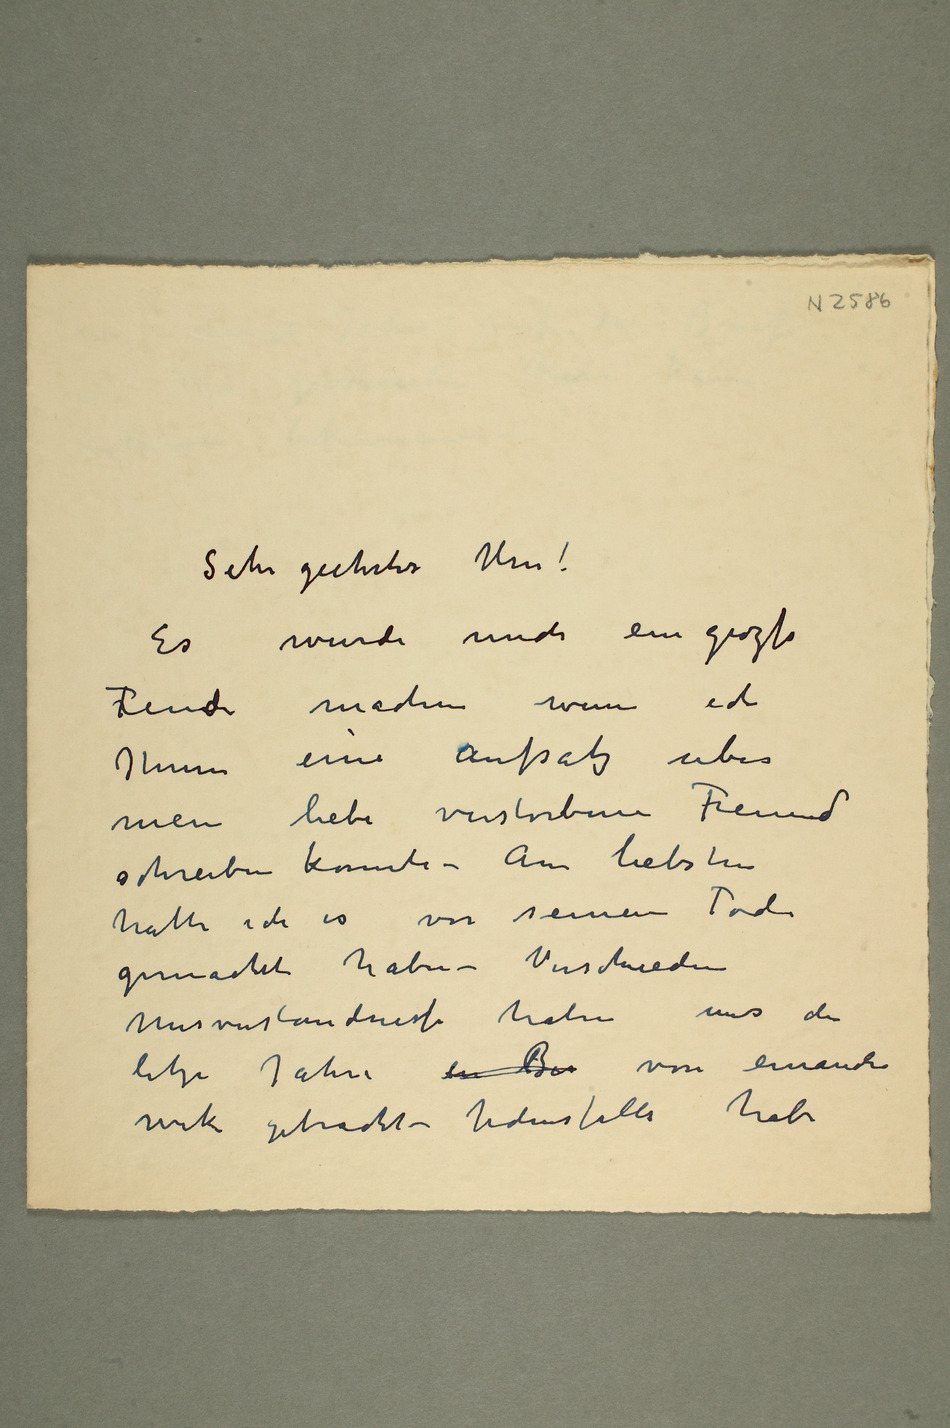 N 2586
Sehr geehrter Herr!
Es wurde mich ein grozse
Feude machen wenn ich
Ihnen eine Aufsatz uber
mein liebe verstorbene Freund
schreiben konnte – Am liebsten
hatte ich es vor seinem Tode
gemacht haben – Verschieden
Misverstandnisse haben uns die
letze Jahre en Bei von einander
wek gebracht – Jedensfalls habe